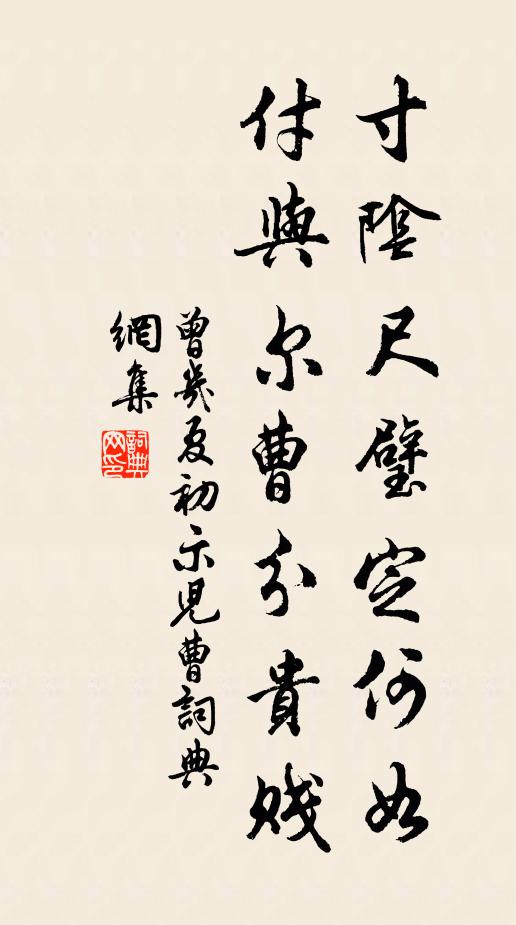 寸陰尺璧定何如
付與尔曹分貴賤
曾幾夏初示兒曹詞典
網集
詞典
网印